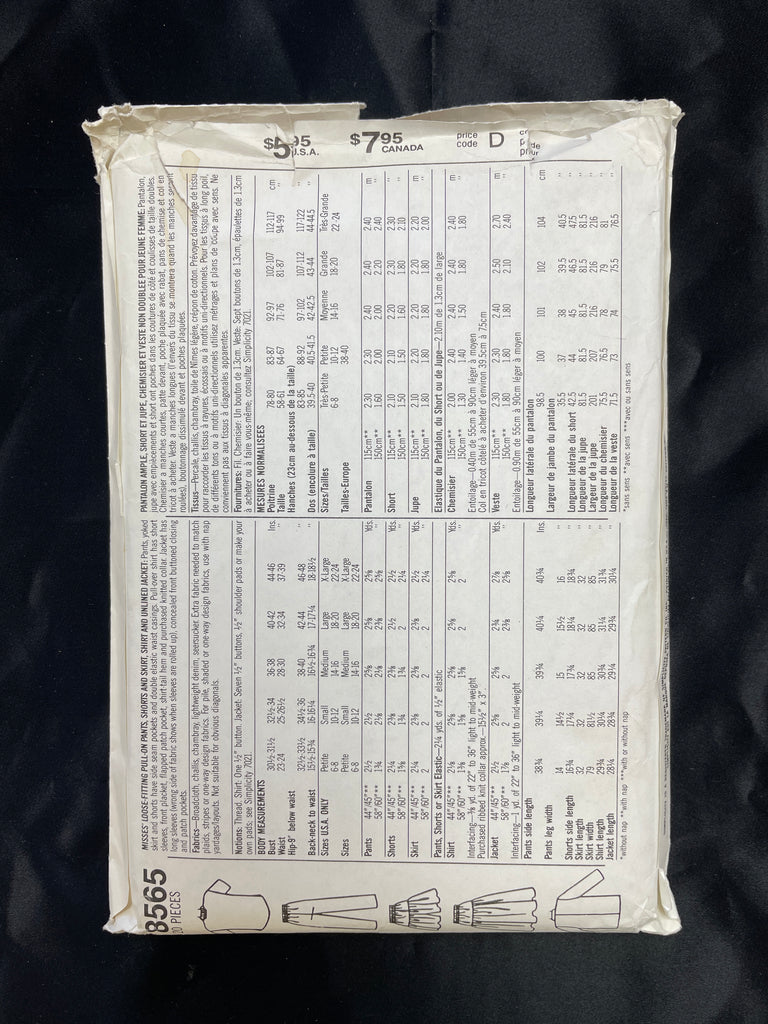 $5.95 U.S.A.
$7.95 CANADA
price code D
8565
20 PIECES
MISSES' LOOSE-FITTING PULL-ON PANTS, SHORTS AND SKIRT, SHIRT AND UNLINED JACKET: Pants, yoked
skirt and shorts have side seam pockets and double elastic waist casings. Pull-over shirt has short
sleeves, front placket, flapped patch pocket, shirt-tail hem and purchased knitted collar. Jacket has
long sleeves (wrong side of fabric shows when sleeves are rolled up), concealed front buttoned closing
and patch pockets.
Fabrics—Broadcloth, challis, chambray, lightweight denim, seersucker. Extra fabric needed to match
plaids, stripes or one-way design fabrics. For pile, shaded or one-way design fabrics, use with nap
yardages/layouts. Not suitable for obvious diagonals.
Notions: Thread. Shirt: One ½" button. Jacket: Seven ½" buttons, ½" shoulder pads or make your
own pads: see Simplicity 7021.
BODY MEASUREMENTS
Bust 30½-31½ 32½-34 36-38 40-42 44-46 Ins.
Waist 23-24 25-26½ 28-30 32-34 37-39 "
Hip-9" below waist 32½-33½ 34½-36 38-40 42-44 46-48 "
Back-neck to waist 15½-15¾ 16-16¼ 16½-16¾ 17-17¼ 18-18½ "
Sizes U.S.A. ONLY Petite 6-8 Small 10-12 Medium 14-16 Large 18-20 X-Large 22-24
Sizes Petite 6-8 Small 10-12 Medium 14-16 Large 18-20 X-Large 22-24
Pants 44"/45"*** 2½ 2½ 2⅝ 2⅝ 2⅝ Yds.
58"/60"*** 1¾ 2⅛ 2⅛ 2⅜ 2⅝ "
Shorts 44"/45"*** 2¼ 2⅜ 2⅜ 2½ 2½ Yds.
58"/60"*** 1⅝ 1¾ 1¾ 2 2¼ "
Skirt 44"/45"*** 2¼ 2⅜ 2⅜ 2⅜ 2½ Yds.
58"/60"*** 2 2 2 2 2¼ "
Pants, Shorts or Skirt Elastic—2¼ yds. of ½" elastic
Shirt 44"/45"*** 2⅛ 2⅝ 2⅝ 2⅝ 2⅝ Yds.
58"/60"*** 1⅜ 1⅝ 1⅝ 2 2 "
Interfacing—⅜ yd. of 22" to 36" light to mid-weight
Purchased ribbed knit collar approx.—15½" x 3".
Jacket 44"/45"*** 2½ 2⅝ 2⅝ 2¾ 2⅞ Yds.
58"/60"*** 2 2 2 2⅜ 2⅝ "
Interfacing—1 yd. of 22" to 36" light to mid-weight
Pants side length 38¾ 39¼ 39¾ 40¼ 40¾ Ins.
Pants leg width 14 14½ 15 15½ 16 "
Shorts side length 16¾ 17¼ 17¾ 18¼ 18¾ "
Skirt length 32 32 32 32 32 "
Skirt width 79 81½ 85 85 85 "
Shirt length 29¾ 30¼ 30¾ 31¼ 31¾ "
Jacket length 28¼ 28¾ 29¼ 29¾ 30¼ "
*without nap **with nap ***with or without nap
PANTALON AMPLE, SHORT ET JUPE, CHEMISIER ET VESTE NON DOUBLEE POUR JEUNE FEMME: Pantalon,
jupe avec empiècements et short ont poches dans les coutures de côté et coulisses de taille doubles.
Chemisier a manches courtes, patte devant, poche plaquée avec rabat, pans de chemise et col en
tricot à acheter. Veste a manches longues (l'envers du tissu se montrera quand les manches seront
roulées), boutonnage dissimulé devant et poches plaquées.
Tissus—Percale, challis, chambray, toile de Nîmes légère, crépon de coton. Prévoyez davantage de tissu
pour raccorder les tissus à rayures, écossais ou à motifs uni-directionnels. Pour les tissus à long poil,
de différents tons ou à motifs uni-directionnels utilisez métrages et plans de coupe avec sens. Ne
conviennent pas aux tissus à diagonales apparentes.
Fournitures: Fil. Chemisier: Un bouton de 1.3cm. Veste: Sept boutons de 1.3cm, épaulettes de 1.3cm
à acheter ou à faire vous-même, consultez Simplicity 7021.
MESURES NORMALISEES
Poitrine 78-80 83-87 92-97 102-107 112-117 cm
Taille 58-61 64-67 71-76 81-87 94-99 "
Hanches (23cm au-dessous de la taille) 83-85 88-92 97-102 107-112 117-122 "
Dos (encolure à taille) 39.5-40 40.5-41.5 42-42.5 43-44 44-44.5 "
Sizes/Tailles Très-Petite 6-8 Petite 10-12 Moyenne 14-16 Grande 18-20 Très-Grande 22-24
Tailles-Europe 38-40
Pantalon 115cm** 2.30 2.30 2.40 2.40 2.40 m
150cm** 1.60 2.00 2.00 2.20 2.40 "
Short 115cm** 2.10 2.10 2.20 2.30 2.30 m
150cm** 1.50 1.50 1.60 1.80 2.10 "
Jupe 115cm** 2.10 2.20 2.20 2.20 2.20 m
150cm** 1.80 1.80 1.80 1.80 2.00 "
Elastique du Pantalon, du Short ou de Jupe—2.10m de 1.3cm de large
Chemisier 115cm** 2.00 2.40 2.40 2.40 2.40 m
150cm** 1.30 1.40 1.50 1.80 1.80 "
Entoilage—0.40m de 55cm à 90cm léger à moyen
Col en tricot côtelé à acheter d'environ 39.5cm à 7.5cm
Veste 115cm** 2.30 2.30 2.40 2.50 2.70 m
150cm** 1.80 1.80 1.80 2.10 2.40 "
Entoilage—0.90m de 55cm à 90cm léger à moyen
Longueur latérale du pantalon 98.5 100 101 102 104 cm
Largeur de jambe du pantalon 35.5 37 38 39.5 40.5 "
Longueur latérale du short 42.5 44 45 46.5 47.5 "
Longueur de la jupe 81.5 81.5 81.5 81.5 81.5 "
Largeur de la jupe 201 207 216 216 216 "
Longueur du chemisier 75.5 76.5 78 79 81 "
Longueur de la veste 71.5 73 74 75.5 76.5 "
*sans sens **avec sens ***avec ou sans sens